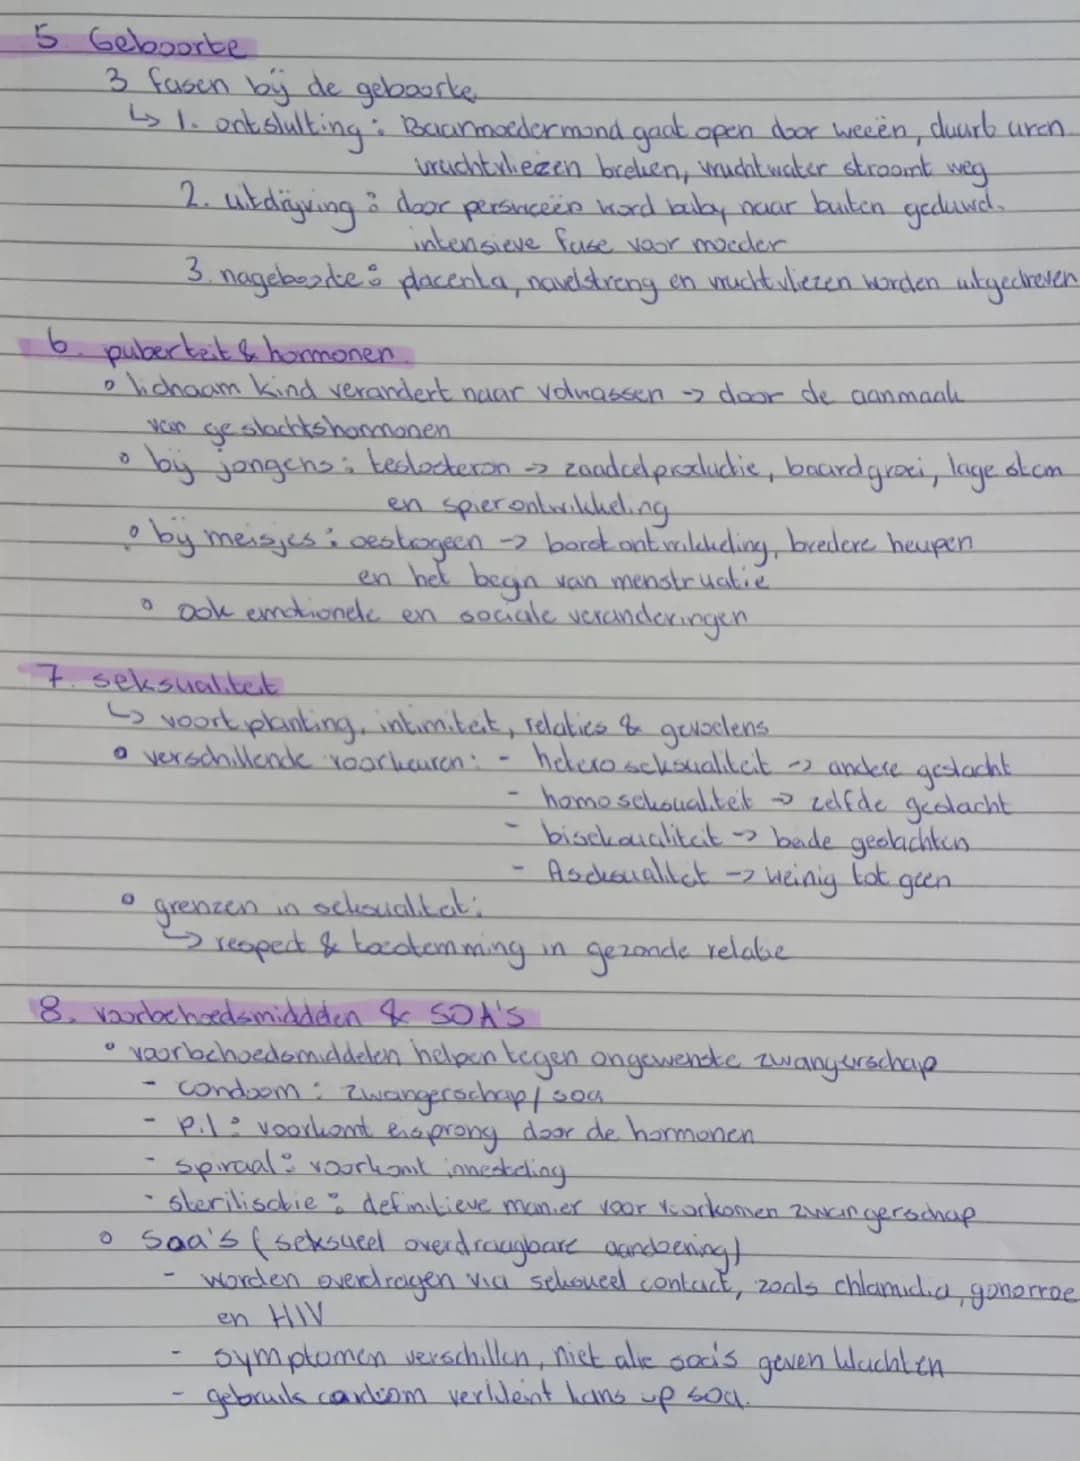 5 Geboorte
3 fasen bij de geboorte
↳ 1. ontsluiting: Baarmoedermond gaat open door weeën, duurt uren
vruchtvliezen breken, vruchtwater stroomt weg
2. uitdrijving: door persweeën word baby naar buiten geduwd.
intensieve fase voor moeder
3. nageboorte: placenta, navelstreng en vruchtvliezen worden uitgedreven
6. puberteit & hormonen
• lichaam kind verandert naar volwassen -> door de aanmaak
van geslachtshormonen
• bij jongens: testosteron -> zaadcelproductie, baardgroei, lage stem
en spierontwikkeling
• bij meisjes: oestrogeen -> borstontwikkeling, bredere heupen
en het begin van menstruatie
• ook emotionele en sociale veranderingen
7. seksualiteit
↳ voortplanting, intimiteit, relaties & gevoelens
• verschillende voorkeuren: - heteroseksualiteit -> andere geslacht
- homoseksualiteit -> zelfde geslacht
- biseksualiteit -> beide geslachten
- Aseksualiteit -> weinig tot geen
• grenzen in seksualiteit:
↳ respect & toestemming in gezonde relatie
8. voorbehoedsmiddelen & SOA's
• voorbehoedsmiddelen helpen tegen ongewenste zwangerschap
- condoom: zwangerschap/soa
- pil: voorkomt eisprong door de hormonen
- spiraal: voorkomt innesteling
- sterilisatie: definitieve manier voor voorkomen zwangerschap
• Soa's (seksueel overdraagbare aandoening)
- worden overdragen via seksueel contact, zoals chlamidia, gonorroe
en HIV
- symptomen verschillen, niet alle soa's geven klachten
- gebruik condoom verkleint kans op soa.